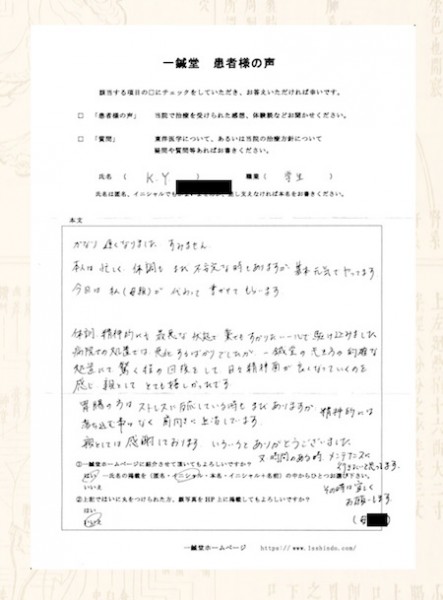 一鍼堂　患者様の声
該当する項目の□にチェックをしていただき、お答えいただければ幸いです。
□　「患者様の声」　当院で治療を受けられた感想、体験談などお聞かせください。
□　「質問」　東洋医学について、あるいは当院の治療方針について
疑問や質問等あればお書きください。
氏名　（　K.Y　）　職業（　学生　）
氏名は匿名、イニシャルでも 差し支えなければ本名をお書きください。
本文
かなり遅くなりました すみません
本人は忙しく、体調も まだ不安定な時もありますが 基本元気でやってます
今日は 私(母親)が 代わって 書かせてもらいます
体調、精神的にも 最悪な状態で 藁をもすがりたい で駆け込みました
病院での処置では 悪化するばかりでしたが 一鍼堂の先生方の的確な
処置にて 驚く程の回復をして 日々精神面が良くなっていくのを
感じ 親として とても嬉しかったです
胃腸の方は ストレスに反応している時も まだありますが 精神的には
落ち込む事はなく 前向きに生活しています。
親としては 感謝しております いろいろとありがとうございました。
又 時間のある時 メンテナンスに
行きたいと思ってます。
その時は宜しく
お願いします
①一鍼堂ホームページに紹介させて頂いてもよろしいですか？
はい　―氏名の掲載を（匿名・イニシャル・本名・イニシャル＋名相）の中からひとつお選び下さい。
いいえ
②上記ではいに丸をつけられた方、顔写真を HP 上に掲載してもよろしいですか？
はい
いいえ
(母
一鍼堂ホームページ　https://www.1sshindo.com/